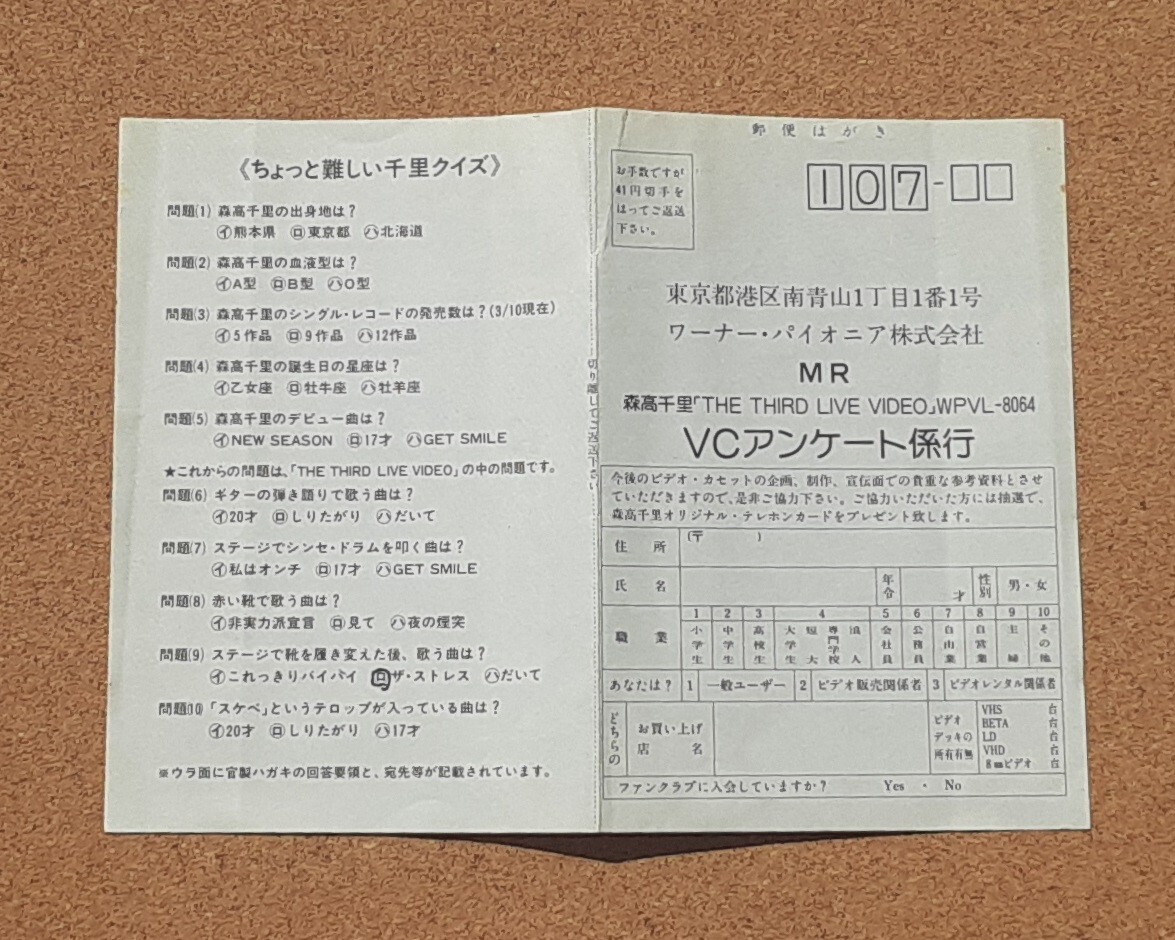 《ちょっと難しい千里クイズ》
問題(1) 森高千里の出身地は?
㋑熊本県 ㋺東京都 ㋩北海道
問題(2) 森高千里の血液型は?
㋑A型 ㋺B型 ㋩O型
問題(3) 森高千里のシングル・レコードの発売数は?(3/10現在)
㋑5作品 ㋺9作品 ㋩12作品
問題(4) 森高千里の誕生日の星座は?
㋑乙女座 ㋺牡牛座 ㋩牡羊座
問題(5) 森高千里のデビュー曲は?
㋑NEW SEASON ㋺17才 ㋩GET SMILE
★これからの問題は、「THE THIRD LIVE VIDEO」の中の問題です。
問題(6) ギターの弾き語りで歌う曲は?
㋑20才 ㋺しりたがり ㋩だいて
問題(7) ステージでシンセ・ドラムを叩く曲は?
㋑私はオンチ ㋺17才 ㋩GET SMILE
問題(8) 赤い靴で歌う曲は?
㋑非実力派宣言 ㋺見て ㋩夜の煙突
問題(9) ステージで靴を履き変えた後、歌う曲は?
㋑これっきりバイバイ ㋺ザ・ストレス ㋩だいて
問題(10) 「スケベ」というテロップが入っている曲は?
㋑20才 ㋺しりたがり ㋩17才
※ウラ面に官製ハガキの回答要領と、宛先等が記載されています。
切り離してご返送下さい
郵便はがき
お手数ですが
41円切手を
はってご返送
下さい。
107-
東京都港区南青山1丁目1番1号
ワーナー・パイオニア株式会社
MR
森高千里「THE THIRD LIVE VIDEO」WPVL-8064
VCアンケート係行
今後のビデオ・カセットの企画、制作、宣伝面での貴重な参考資料とさせ
ていただきますので、是非ご協力下さい。ご協力いただいた方には抽選で、
森高千里オリジナル・テレホンカードをプレゼント致します。
住所 (〒 )
氏名 年令 才 性別 男・女
職業
1 小学生
2 中学生
3 高校生
4 大学生 短大 専門学校 浪人
5 会社員
6 公務員
7 自由業
8 自営業
9 主婦
10 その他
あなたは? 1 一般ユーザー 2 ビデオ販売関係者 3 ビデオレンタル関係者
どちらの
お買い上げ
店名
ビデオ
デッキの
所有有無
VHS 台
BETA 台
LD 台
VHD 台
8㎜ビデオ 台
ファンクラブに入会していますか? Yes ・ No